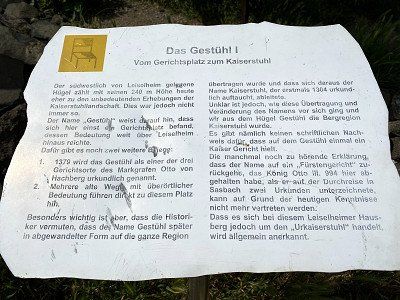 Das Gestühl I
Vom Gerichtsplatz zum Kaiserstuhl
Der südwestlich von Leiselheim gelegene
Hügel zählt mit seinen 240 m Höhe heute
eher zu den unbedeutenden Erhebungen der
Kaiserstuhllandschaft. Dies war jedoch nicht
immer so.
Der Name „Gestühl" weist darauf hin, dass
sich hier einst ein Gerichtsplatz befand,
dessen Bedeutung weit über Leiselheim
hinaus reichte.
Dafür gibt es noch zwei weitere Belege:
1379 wird das Gestühl als einer der drei
Gerichtsorte des Markgrafen Otto von
Hachberg urkundlich genannt.
2. Mehrere alte Wege mit überörtlicher
Bedeutung führen direkt zu diesem Platz
hin.
Besonders wichtig ist aber, dass die Histori-
ker vermuten, dass der Name Gestühl später
in abgewandelter Form auf die ganze Region
übertragen wurde und dass sich daraus der
Name Kaiserstuhl, der erstmals 1304 urkund-
lich auftaucht, ableitete.
Unklar ist jedoch, wie diese Übertragung und
Veränderung des Namens vor sich ging und
wir aus dem Hügel Gestühl die Bergregion
Kaiserstuhl wurde.
Es gibt nämlich keinen schriftlichen Nach-
weis dafür, dass auf dem Gestühl einmal ein
Kaiser Gericht hielt.
Die manchmal noch zu hörende Erklärung,
dass der Name auf ein „Fürstengericht" zu-
rückgehe, das König Otto III. 994 hier ab-
gehalten habe, als er auf der Durchreise in
Sasbach zwei Urkunden unterzeichnete,
kann auf Grund der heutigen Kenntnisse
nicht mehr vertreten werden.
Dass es sich bei diesem Leiselheimer Haus-
berg jedoch um den „Urkaiserstuhl" handelt,
wird allgemein anerkannt.